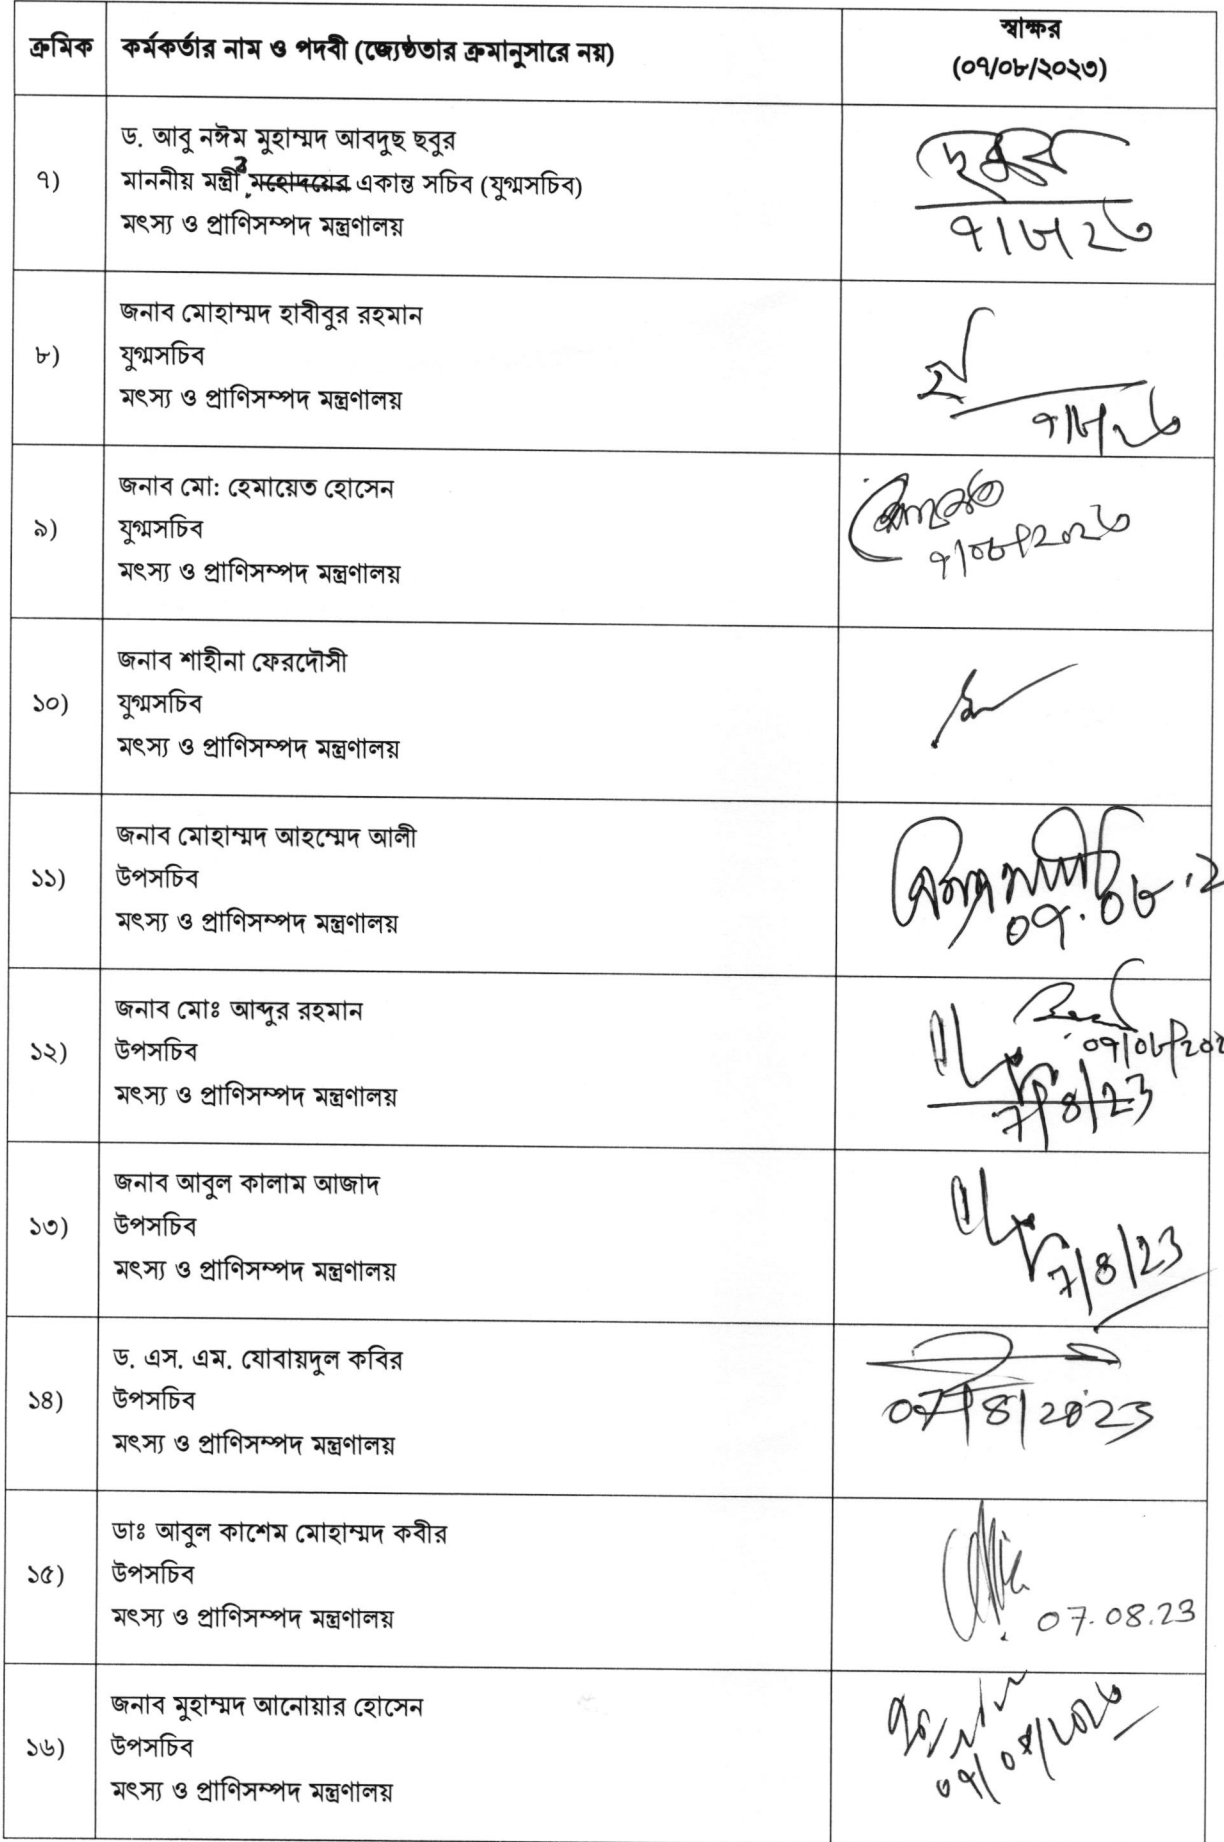 ক্রমিক
কর্মকর্তার নাম ও পদবী (জ্যেষ্ঠতার ক্রমানুসারে নয়)
স্বাক্ষর
(০৭/০৮/২০২৩)
৭)
ড. আবু নঈম মুহাম্মদ আবদুছ ছবুর
মাননীয় মন্ত্রীর মহোদয়ের একান্ত সচিব (যুগ্মসচিব)
মৎস্য ও প্রাণিসম্পদ মন্ত্রণালয়
ছবুর
৭/৮/২৩
৮)
জনাব মোহাম্মদ হাবীবুর রহমান
যুগ্মসচিব
মৎস্য ও প্রাণিসম্পদ মন্ত্রণালয়
৭/৮/২৩
৯)
জনাব মো: হেমায়েত হোসেন
যুগ্মসচিব
মৎস্য ও প্রাণিসম্পদ মন্ত্রণালয়
৭/০৮/২০২৩
১০)
জনাব শাহীনা ফেরদৌসী
যুগ্মসচিব
মৎস্য ও প্রাণিসম্পদ মন্ত্রণালয়
১১)
জনাব মোহাম্মদ আহম্মেদ আলী
উপসচিব
মৎস্য ও প্রাণিসম্পদ মন্ত্রণালয়
০৭.০৮.২
১২)
জনাব মোঃ আব্দুর রহমান
উপসচিব
মৎস্য ও প্রাণিসম্পদ মন্ত্রণালয়
০৭/০৮/২০২
7/8/23
১৩)
জনাব আবুল কালাম আজাদ
উপসচিব
মৎস্য ও প্রাণিসম্পদ মন্ত্রণালয়
7/8/23
১৪)
ড. এস. এম. যোবায়দুল কবির
উপসচিব
মৎস্য ও প্রাণিসম্পদ মন্ত্রণালয়
07/8/2023
১৫)
ডাঃ আবুল কাশেম মোহাম্মদ কবীর
উপসচিব
মৎস্য ও প্রাণিসম্পদ মন্ত্রণালয়
07.08.23
১৬)
জনাব মুহাম্মদ আনোয়ার হোসেন
উপসচিব
মৎস্য ও প্রাণিসম্পদ মন্ত্রণালয়